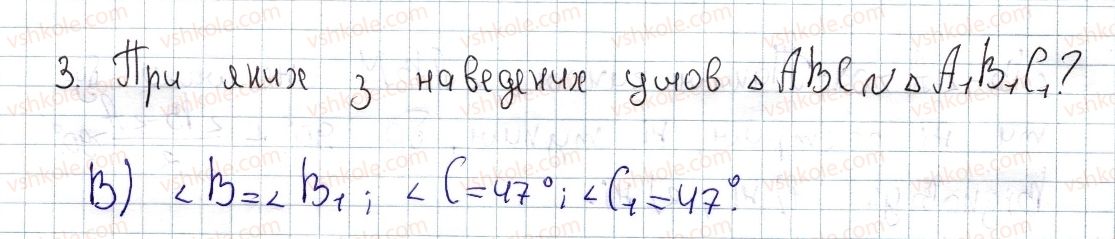 3. При яких з наведених умов △ABC∾△A₁B₁C₁?
B) <B=<B₁; <C=47°; <C₁=47°.